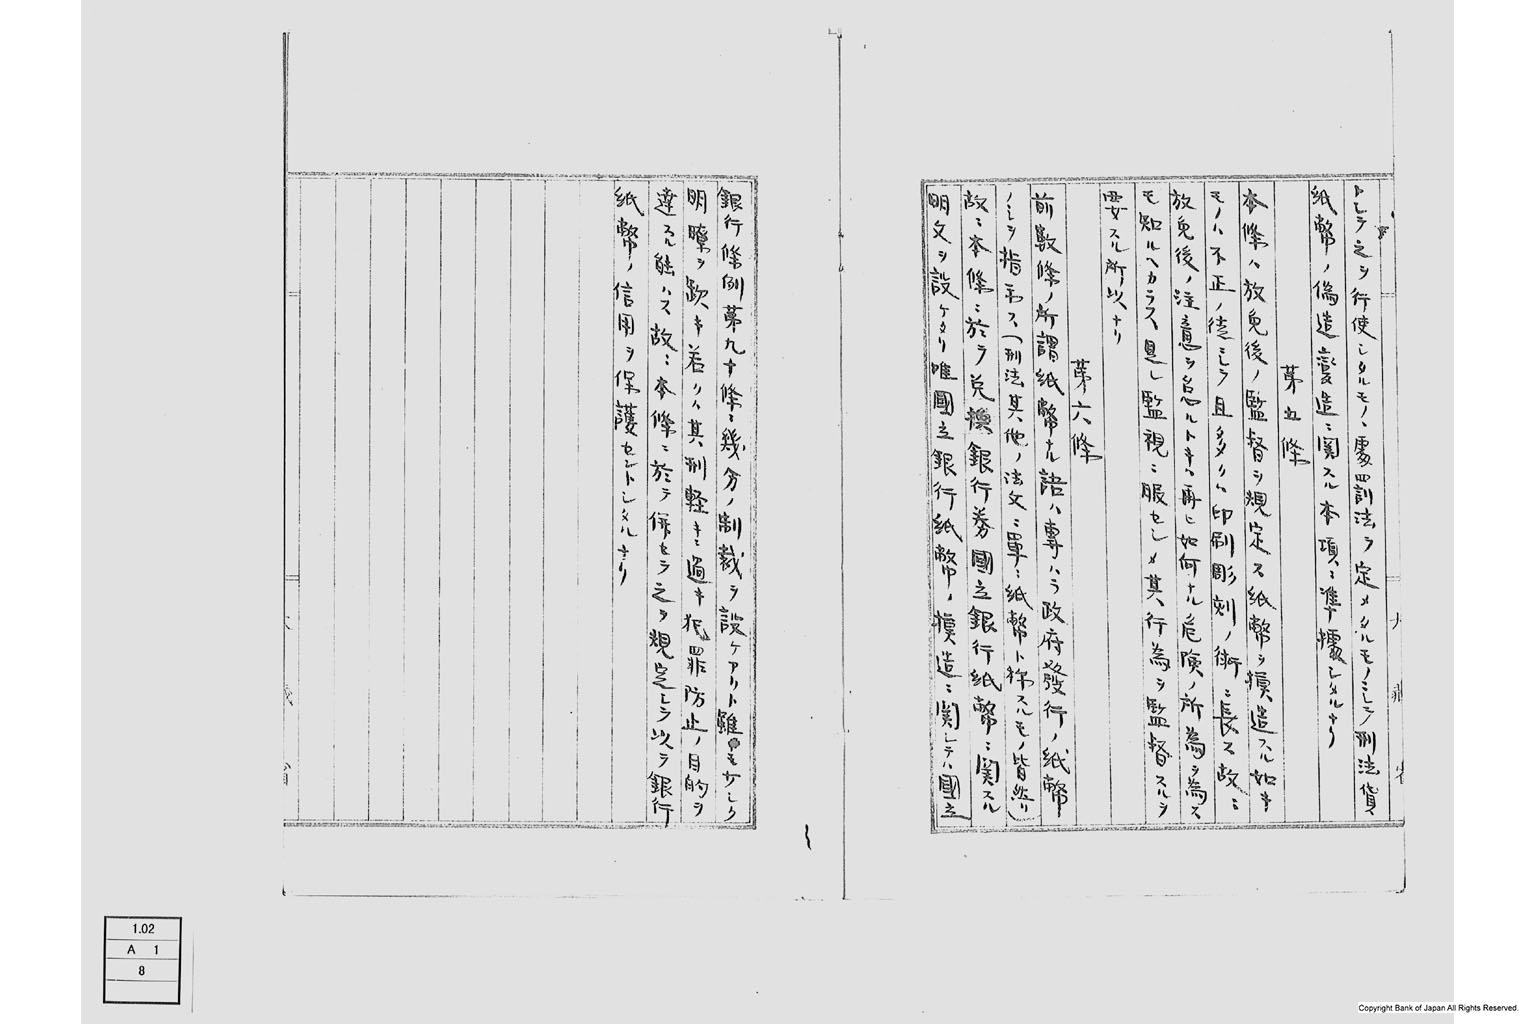 トシテ之ヲ行使シタルモノヽ處罰法ヲ定メタルモノニシテ刑法貨
紙幣ノ偽造變造ニ関スル本項ニ準據シタルナリ
第五條
本條ハ放免後ノ監督ヲ規定ス紙幣ヲ摸造スル如キ
モノハ不正ノ徒ニシテ且多クハ印刷彫刻ノ術ニ長ス故ニ
放免後ノ注意ヲ怠ルトキハ再ヒ如何ナル危険ノ所為ヲ為ス
モ知ルヘカラス是レ監視ニ服セシメ其行為ヲ監督スルヲ
要スル所以ナリ
第六條
前數條ノ所謂紙幣ナル語ハ專ハラ政府發行ノ紙幣
ノミヲ指示ス(刑法其他ノ法文ニ單ニ紙幣ト称スルモノ皆然リ)
故ニ本條ニ於テ兌換銀行券國立銀行紙幣ニ関スル
明文ヲ設ケタリ唯國立銀行紙幣ノ摸造ニ関シテハ國立
大藏省
銀行條例第九十條ニ幾分ノ制裁ヲ設ケアリト雖モ少シク
明瞭ヲ欠キ若クハ其刑軽キニ過キ犯罪防止ノ目的ヲ
達スル能ハス故ニ本條ニ於テ併セテ之ヲ規定シテ以テ銀行
紙幣ノ信用ヲ保護セントシタルナリ
1.02
A 1
8
Copyright Bank of Japan All Rights Reserved.